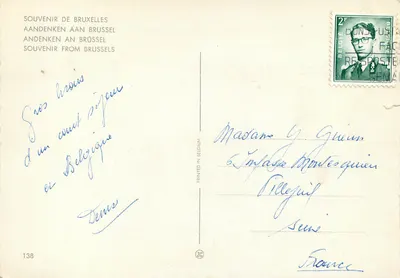 SOUVENIR DE BRUXELLES
AANDENKEN AAN BRUSSEL
ANDENKEN AN BRÜSSEL
SOUVENIR FROM BRUSSELS
2F
Gros baisers
d'un court séjour
en Belgique
Denise
Madame Y
Impasse Montesquieu
Villejuif
Seine
France
PRINTED IN BELGIUM
138